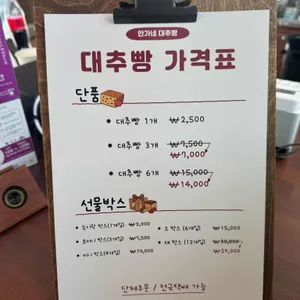 안가네 대추빵
대추빵 가격표
단품
• 대추빵 1개 ₩2,500
• 대추빵 3개 ₩7,500
₩7,000
• 대추빵 6개 ₩15,000
₩14,000
선물박스
• 도시락 박스(1개입) ₩3,000
• 소 박스 (6개입) ₩15,000
(3개입) ₩7,500
• 대 박스 (12개입) ₩30,000
• 미니 박스(4개입) ₩10,000
₩29,000
단체주문 / 전국택배 가능